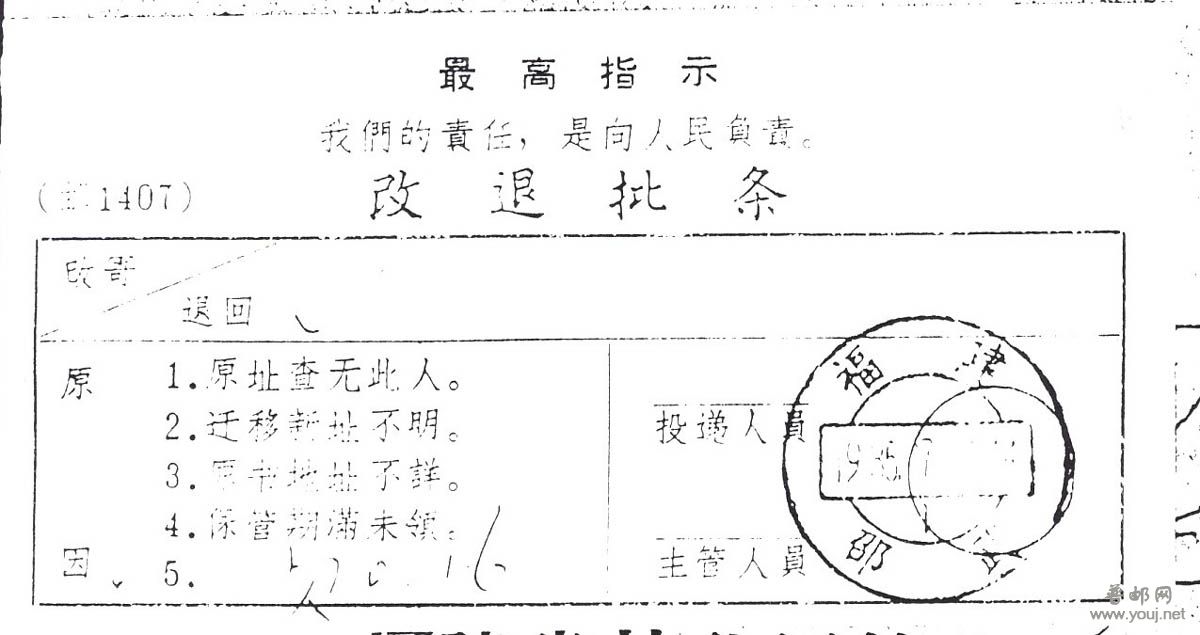 最高指示
我們的責任，是向人民負責。
改退批条
1407)
改寄
退回
原因
1.原址查无此人。
2.迁移新址不明。
3.原书地址不詳。
4.保管期滿未領。
5.
投递人員
主管人員
福
邵
普邮网
www.youj.net